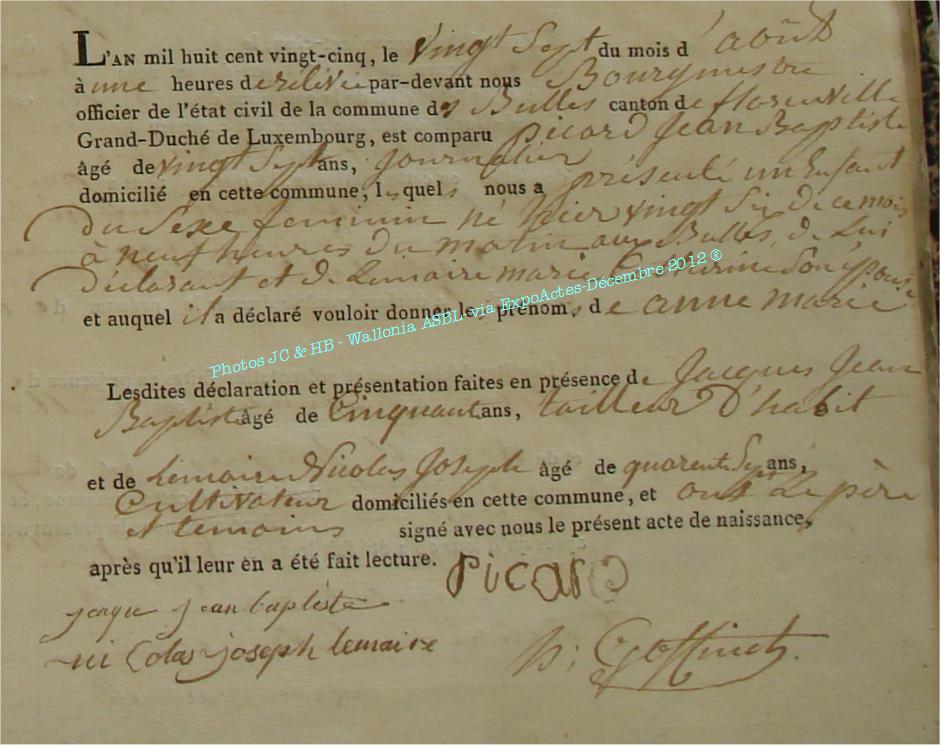 L'AN mil huit cent vingt-cinq, le vingt sept du mois d'août
à une heures de relivée par-devant nous Bourgmestre
officier de l'état civil de la commune des Bulles canton de florenville
Grand-Duché de Luxembourg, est comparu picard Jean Baptiste
âgé de vingt sept ans, journalier
domicilié en cette commune, lesquels nous a présenté un Enfant
du Sexe feminin né hier vingt Six de ce mois
à neuf heures du matin aux Bulles, de Lui
déclarant et de Lemaire marie Catherine Son épouse
et auquel il a déclaré vouloir donner les prénoms de anne marie
Photos JC & HB - Wallonia ASBL via ExpoActes-Décembre 2012 ®
Lesdites déclaration et présentation faites en présence de Jacques Jean
Baptiste âgé de Cinquant ans, tailleur d'habit
et de Lemaire Nicolas Joseph âgé de quarente Sept ans,
Cultivateur domiciliés en cette commune, et ont Le père
et temoins signé avec nous le présent acte de naissance,
après qu'il leur en a été fait lecture. Picard
jaque jean baptiste
nicolas joseph lemaire
h: Goffinet.